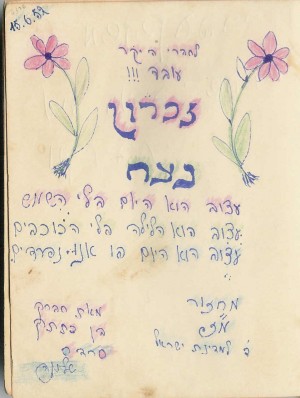 15.6.52
לחברי היקר
עובד !!!
זכרון
נצח
עצוב הוא היום בלי השמש
עצוב הוא הלילה בלי הכוכבים
עצוב הוא היום בו אנו נפרדים.
מחזור
ה' למדינת ישראל
מאת חברך
בן כתתך